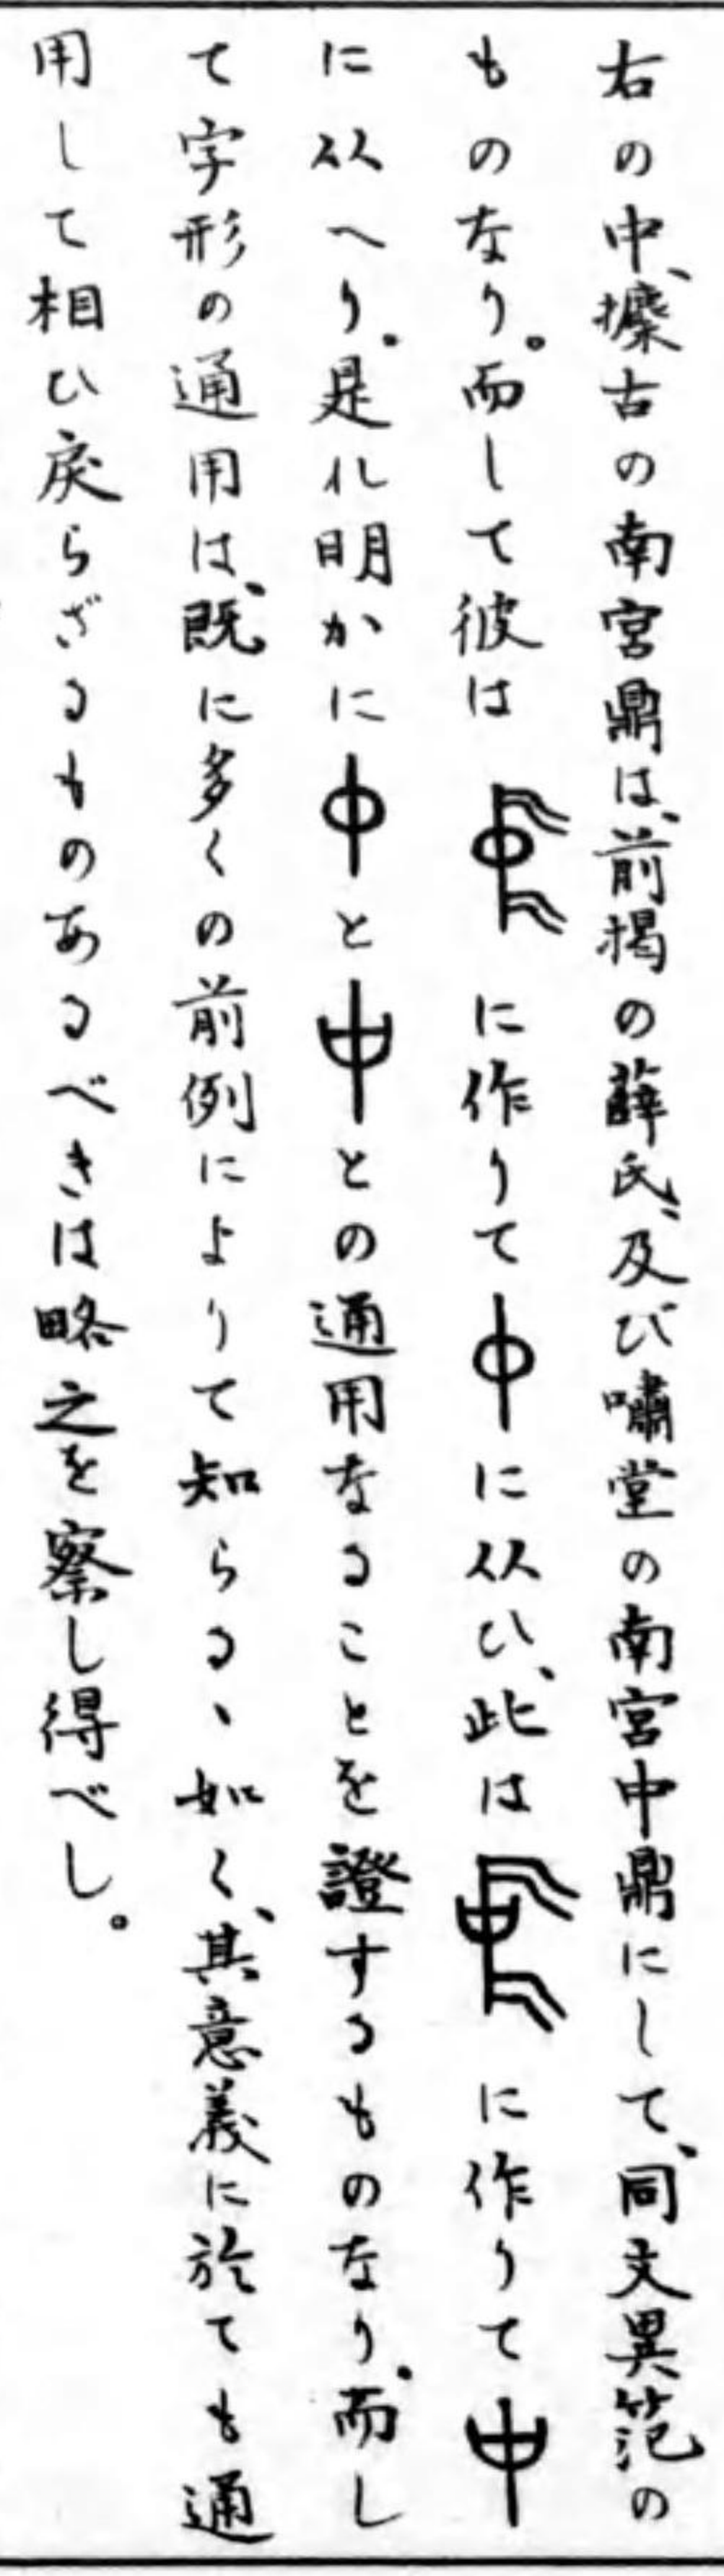 右の中、攈古の南宮鼎は、前掲の薛氏、及び嘯堂の南宮中鼎にして、同文異笵の
ものなり。而して彼はに作りてに从ひ、此はに作りて
に从へり。是れ明かにととの通用なることを證するものなり。而し
て字形の通用は、既に多くの前例によりて知らるゝ如く、其意義に於ても通
用して相ひ戻らざるものあるべきは略之を察し得べし。